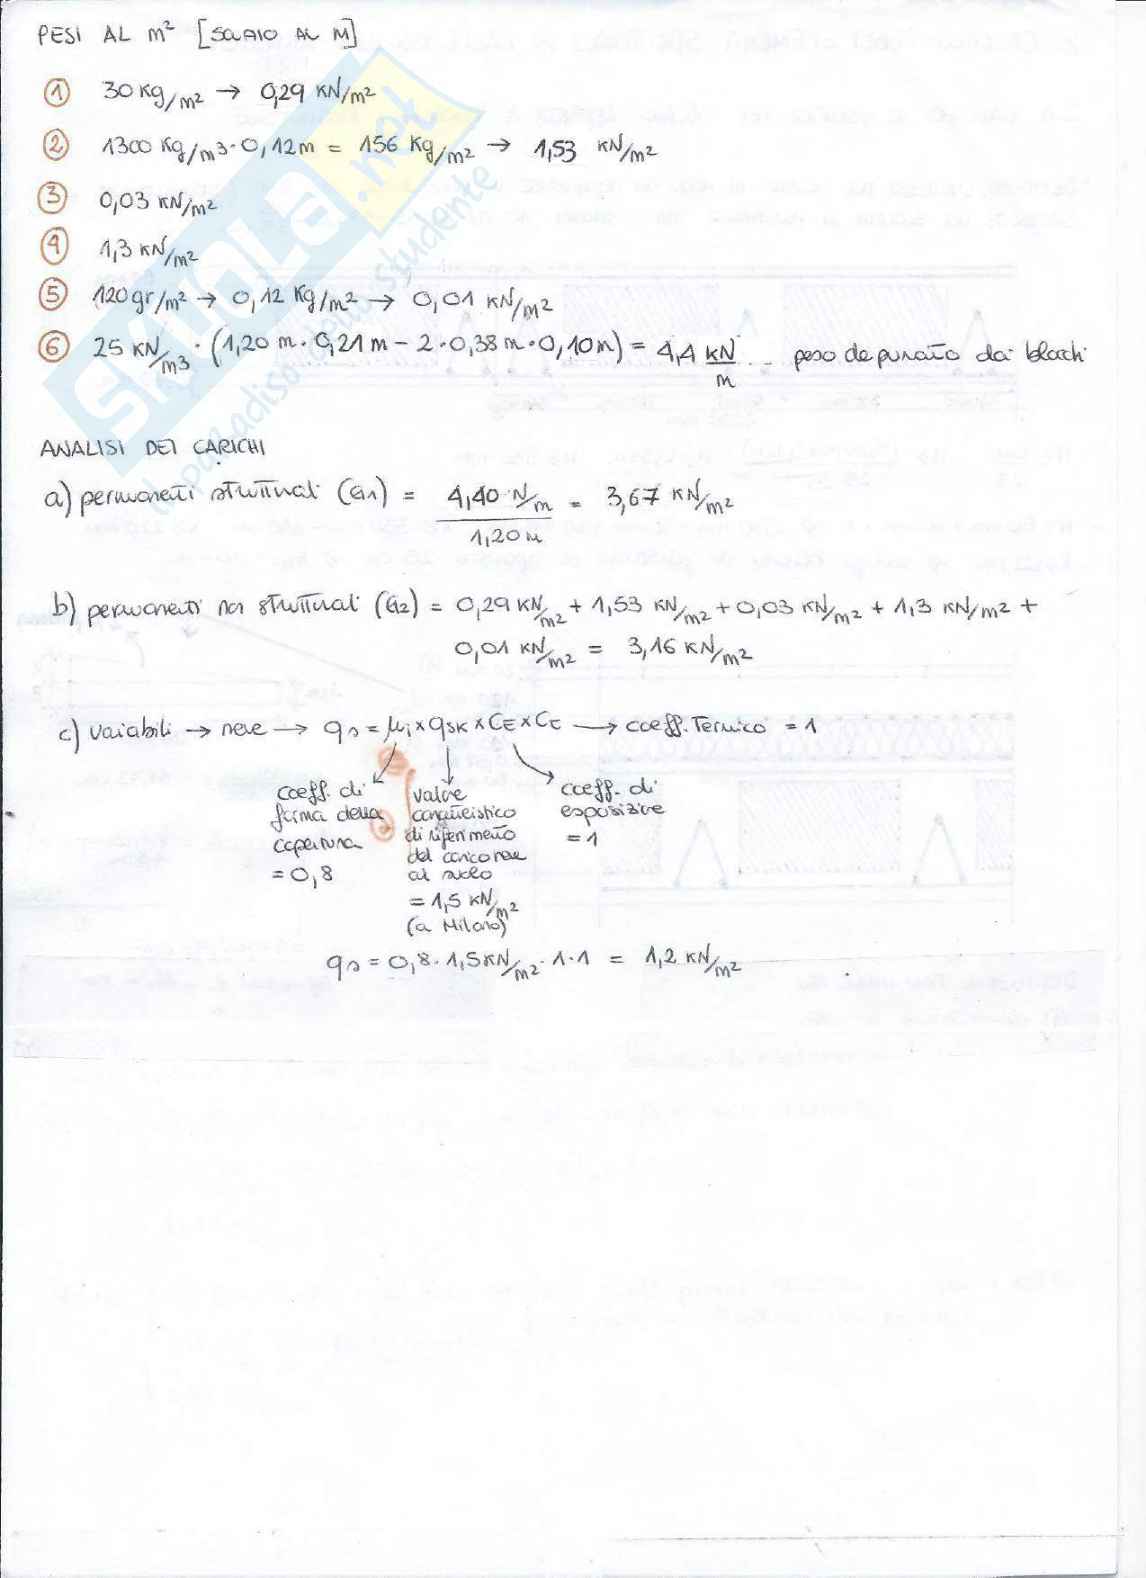 PESI AL m² [SOLAIO AL M]
① 30 Kg/m² → 0,29 KN/m²
② 1300 Kg/m3 · 0,12m = 156 Kg/m² → 1,53 KN/m²
③ 0,03 KN/m²
④ 1,3 KN/m²
⑤ 120gr/m² → 0,12 Kg/m² → 0,01 KN/m²
⑥ 25 KN/m3 · (1,20 m · 0,21 m - 2 · 0,38 m · 0,10 m) = 4,4 KN/m ... peso depurato dai blocchi
ANALISI DEI CARICHI
a) permanenti strutturali (G1) = 4,40 N/m / 1,20 m = 3,67 KN/m²
b) permanenti non strutturali (G2) = 0,29 KN/m² + 1,53 KN/m² + 0,03 KN/m² + 1,3 KN/m² +
0,01 KN/m² = 3,16 KN/m²
c) variabili → neve → qs = μi × qSK × CE × CE → coeff. Termico = 1
coeff. di
forma della
copertura
= 0,8
valore
caratteristico
di riferimento
del carico neve
al suolo
= 1,5 KN/m²
(a Milano)
coeff. di
esposizione
= 1
qs = 0,8 · 1,5 KN/m² · 1 · 1 = 1,2 KN/m²
SKUOLA.net
il paradiso dello studente